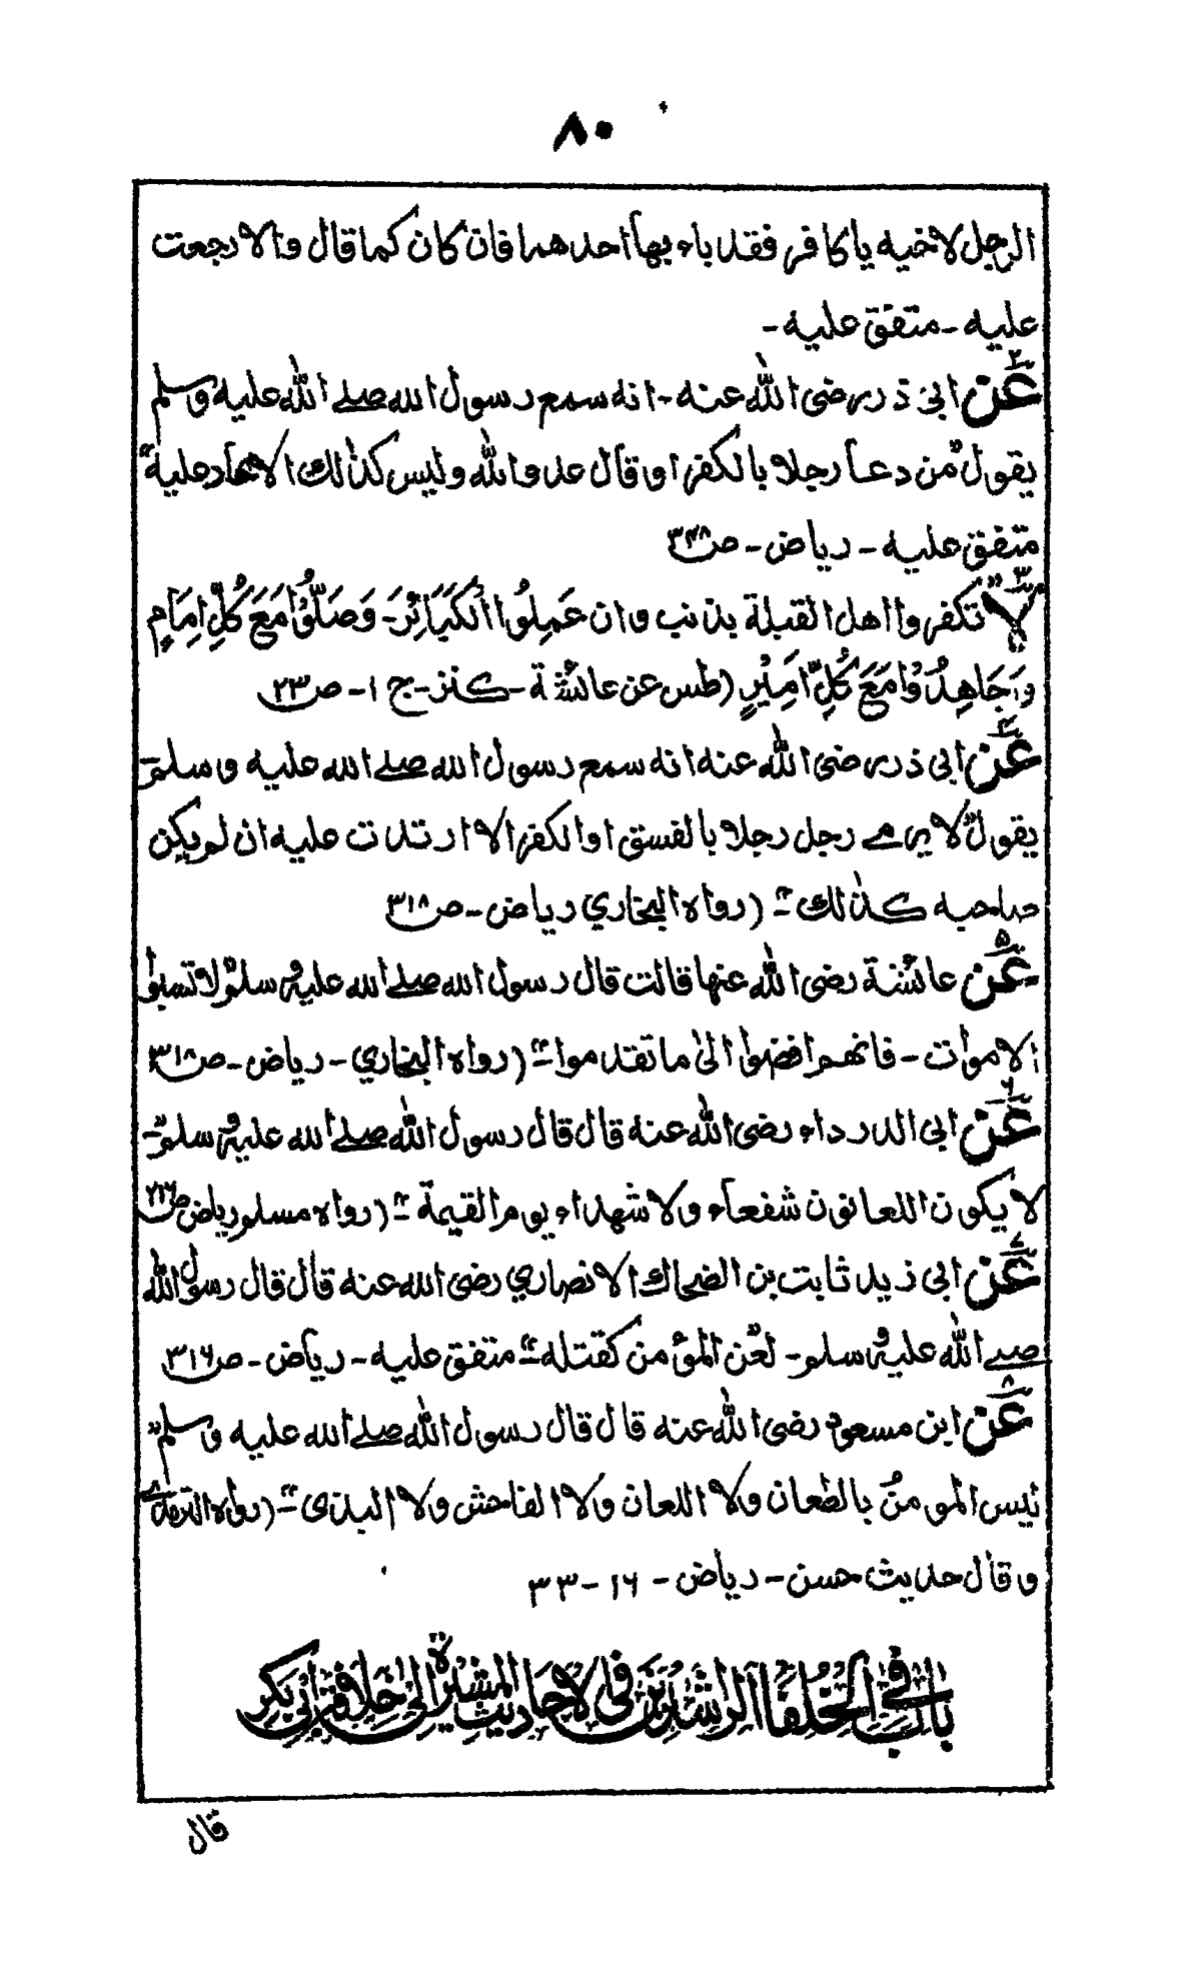 ٨٠
الرجل لاخيه يا كافر فقد باء بها احدهما فان كان كما قال والا رجعت
عليه - متفق عليه -
٢ عن ابي ذر رضى الله عنه - انه سمع رسول الله صلے الله عليه وسلم
يقول "من دعا رجلا بالكفر او قال عدو الله وليس كذالك الا حار عليه"
متفق عليه - رياض - ص
٣ "لا تكفروا اهل القبلة بذنب وان عَمِلُوا الْكَبَائِرَ - وَصَلُّوْا مَعَ كُلِّ اِمَامٍ
وَجَاهِدُوْا مَعَ كُلِّ اَمِيْرٍ (طس عن عائشة - كنز - ج ١ - ص ٢٣
٤ عن ابى ذر رضى الله عنه انه سمع رسول الله صلے الله عليه وسلم
يقول "لا يرمے رجل رجلا بالفسق او الكفر الا ارتدت عليه ان لم يكن
صاحبه كذالك" (رواه البخاري رياض - ص ٣١٨
٥ عن عائشة رضى الله عنها قالت قال رسول الله صلے الله عليه وسلم "لا تسبوا
الاموات - فانهم افضوا الىٰ ما تقدموا" (رواه البخاري - رياض - ص ٣١٨
٦ عن ابى الدرداء رضى الله عنه قال قال رسول الله صلے الله عليه وسلم "-
لا يكون اللعانون شفعاء ولا شهداء يوم القيمة" (رواه مسلم رياض ص
٧ عن ابى زيد ثابت بن الضحاك الانصاري رضى الله عنه قال قال رسول الله
صلے الله عليه وسلم - لعن المؤمن كقتله" متفق عليه - رياض - ص ٣١٦
٨ عن ابن مسعود رضى الله عنه قال قال رسول الله صلے الله عليه وسلم"
ليس المومن بالطعان ولا اللعان ولا الفاحش ولا البذى" (رواه الترمذے
وقال حديث حسن - رياض - ١٦ - ٣٣
باب في الخلفاء الراشدين في الاحاديث المشيرة الى خلافة ابي بكر
قال